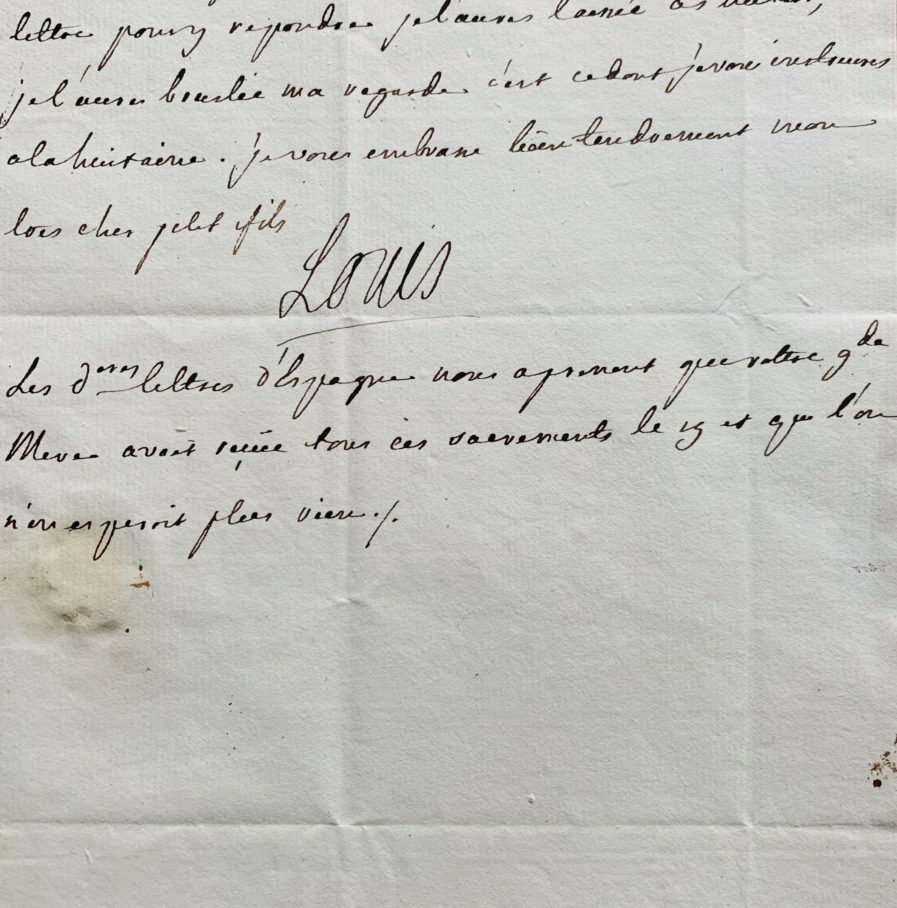 lettre pour y repondre je l'aures laisée
je l'aures bruslée ma regarde c'est ce dont je vous
a la huitaine. je vous embrasse bien tendrement mon
tres cher petit fils
Louis
Les d.eres lettres d'Espagne nous aprenent que vostre g.de
Mere avoit reçüe tous ces sacrements le 19 et que l'on
n'en esperoit plus rien ./.